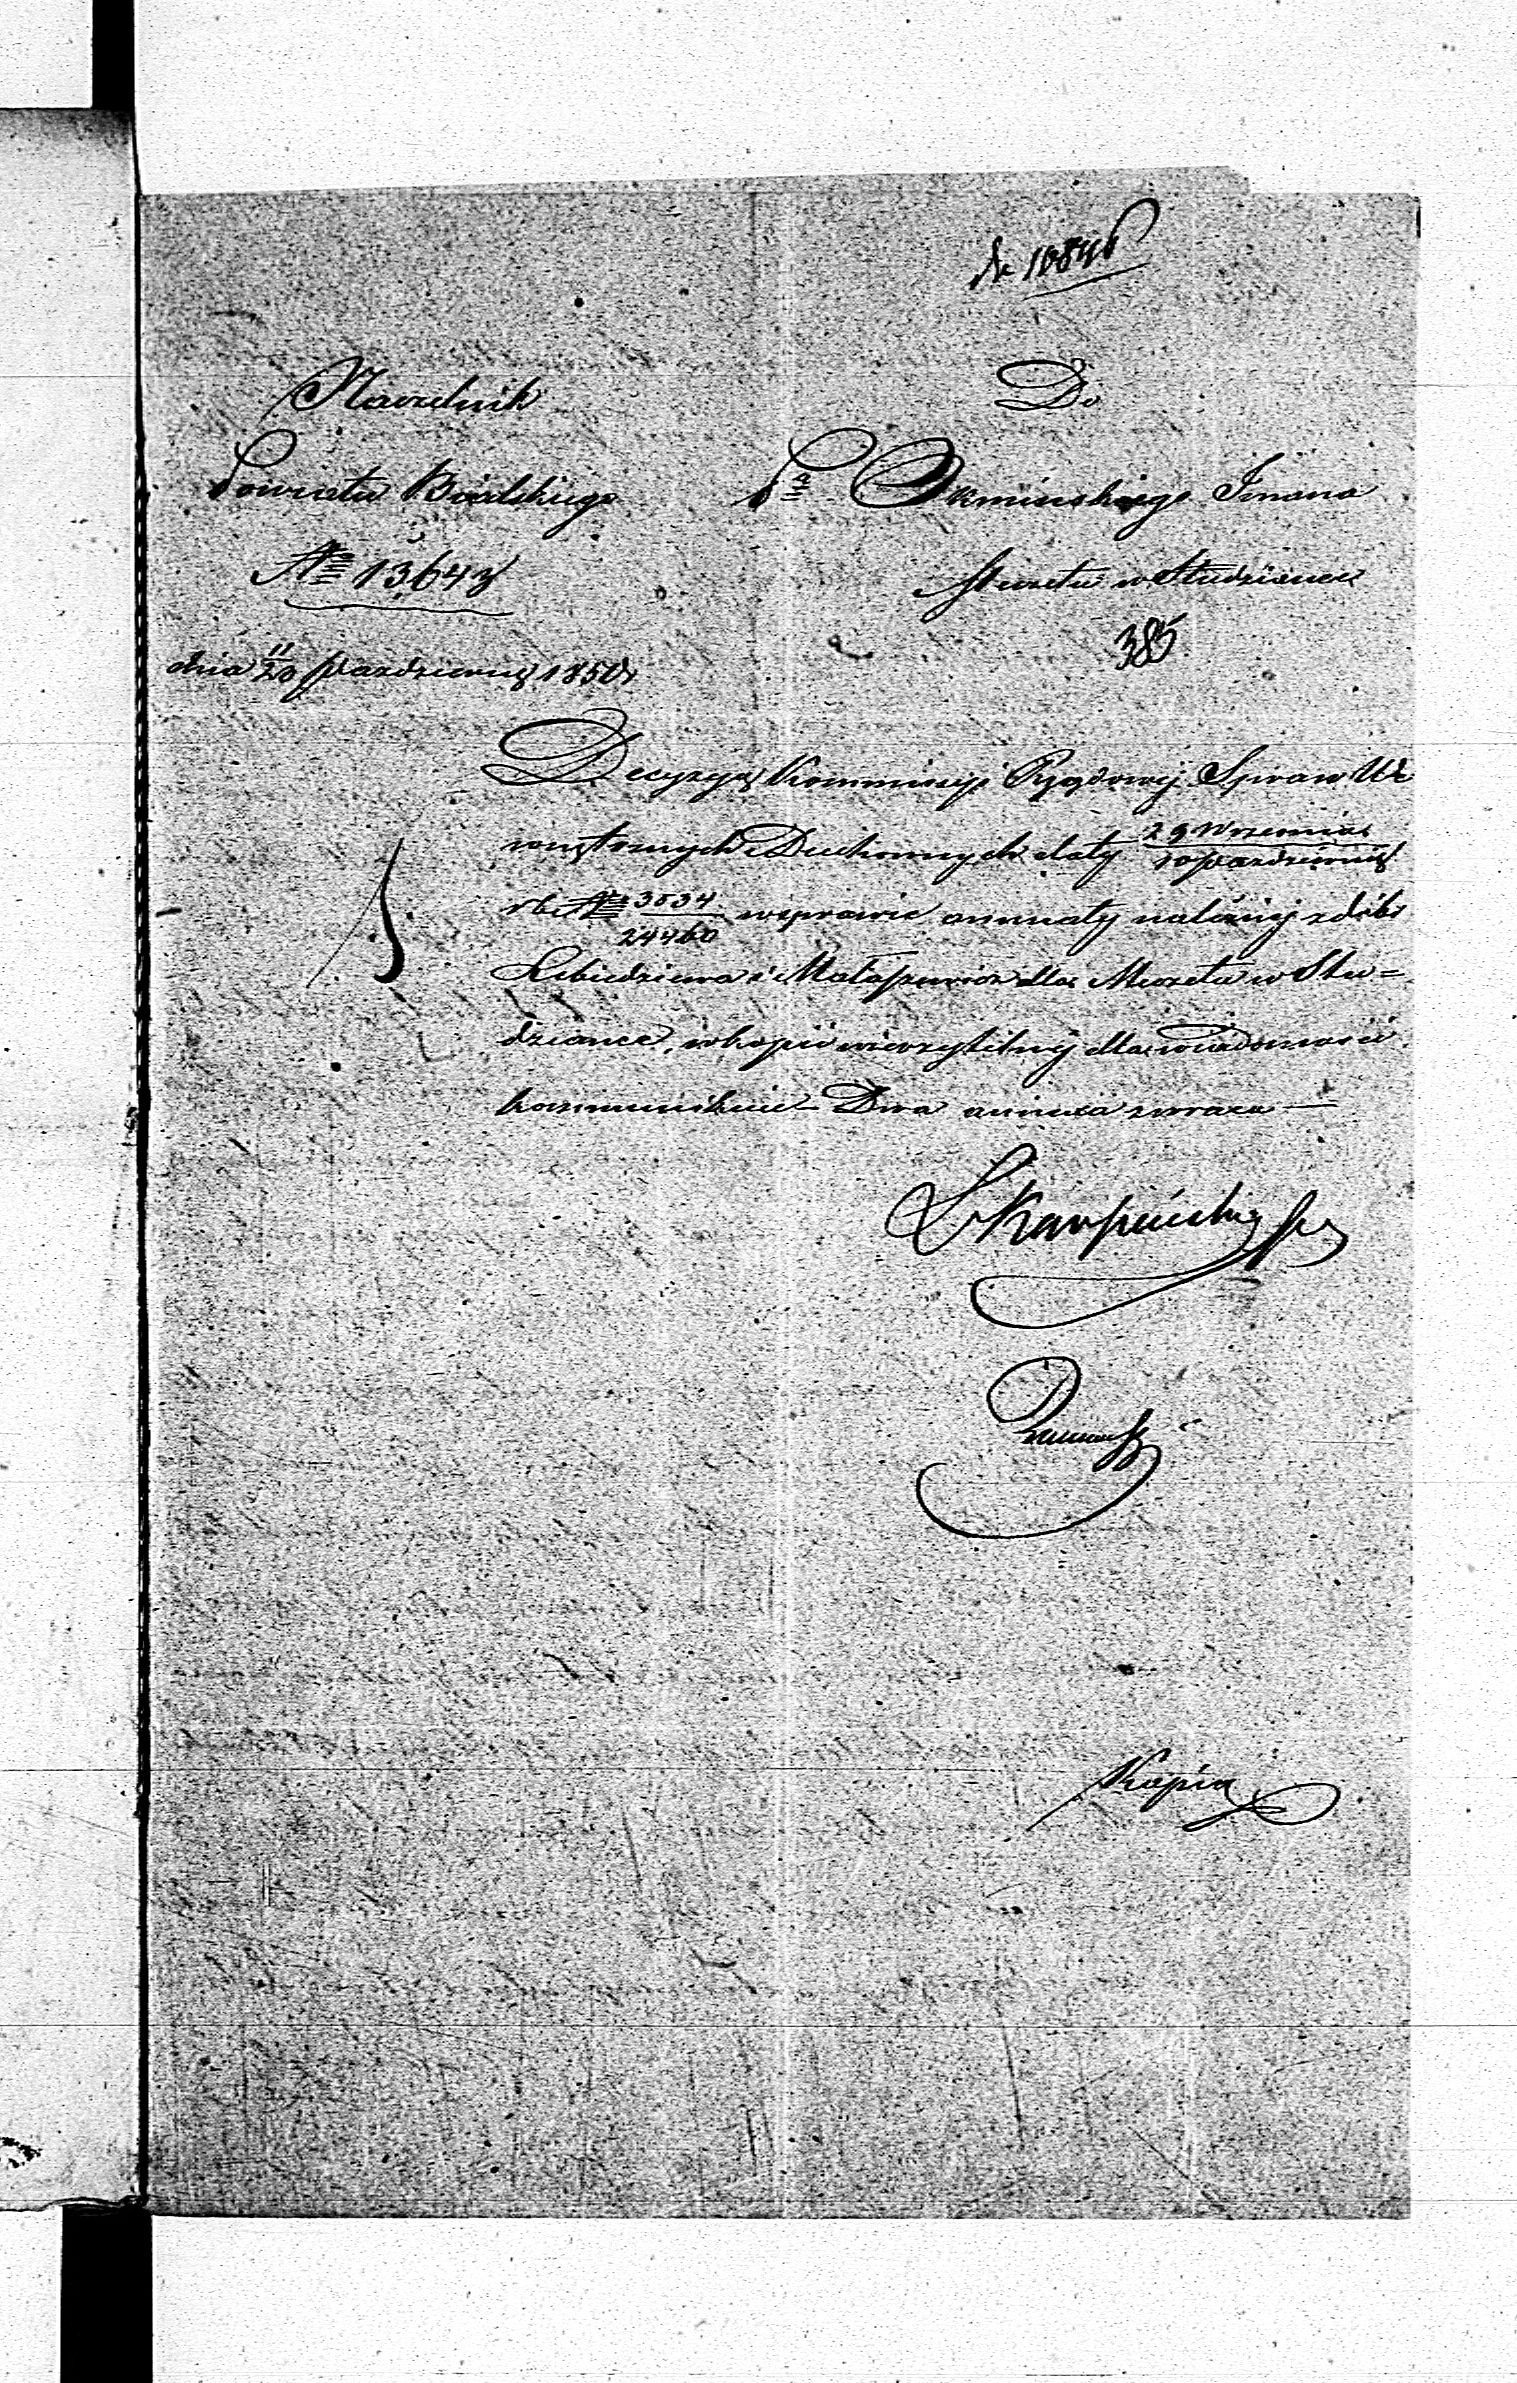 Naczelnik
Powiatu Bialskiego
№ 13643
dnia 20 pazdziernę 1850 r
Do
Pa Okminskiego Imana
Meczetu w Studziance
385
Decyzyą Kommissyi Rządowej Spraw We
wnętrznych i Duchownych daty 29 Wrzesnia / 10 pazdziernię
rb № 3034 / 24460 w sprawie annuaty należnej z dóbr
Lebiedziewa i Małaszewicz dla Meczetu w Stu=
dziance, w kopii wierzytelnej dla wiadomości
kommunikuie — Dwa annexa zwraca —
Karpiński
Kopia